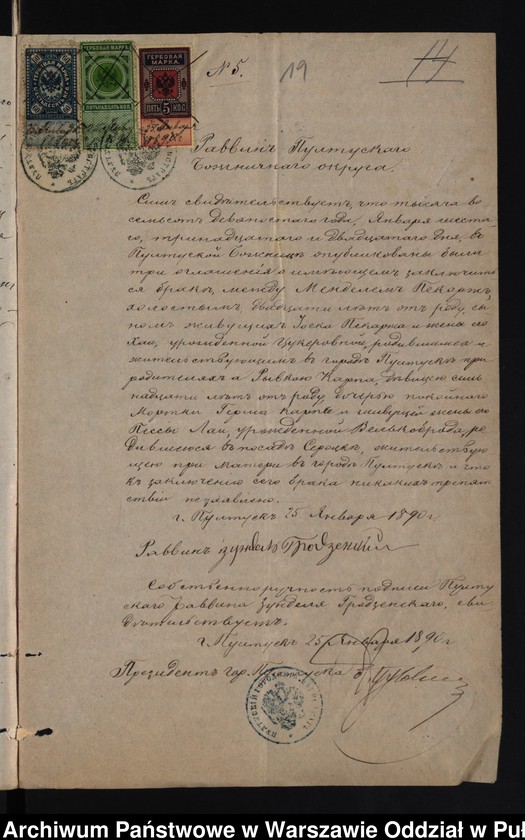 ГЕРБОВАЯ МАРКА
ГЕРБОВАЯ МАРКА.
ПЯТНАДЦАТЬ КОП.
ПЯТЬ 5 КОП.
N 5.
19
14
Раввинъ Пултускаго
Божничнаго округа.
Симъ свидѣтельствуетъ, что тысяча во
семьсотъ девяностаго года, Января шеста
го, тринадцатаго и двадцатаго дня, въ
Пултуской Божницѣ опубликованы были
три оглашенія о имѣющемъ заключить
ся бракѣ, между Менделемъ Пекаржъ,
холостымъ, двадцати лѣтъ отъ роду, сы
номъ живущихъ Іоска Пекаржа и жены его
Хаи, урожденной Цукеровной, родившимся и
жительствующимъ въ городѣ Пултускѣ при
родителяхъ а Рывкою Карпа, дѣвицею семь
надцати лѣтъ отъ роду, дочерью покойнаго
Мортки Герша Карпа и живущей жены его
Пессы Лаи, урожденной Велькоброда, ро
дившеюся въ посадѣ Сероцкъ, жительствую
щею при матери въ городѣ Пултускѣ и что
къ заключенію сего брака никакихъ препят
ствій не заявлено.
г. Пултускъ 25 Января 1890 г.
Раввинъ Зундель Гродзенскій
Собственноручность подписи Пулту
скаго Раввина Зунделя Гродзенскаго, сви
дѣтельствуетъ.
г. Пултускъ 25 Января 1890 г.
Президентъ гор. Пултуска
Archiwum Państwowe w Warszawie Oddział w Pu